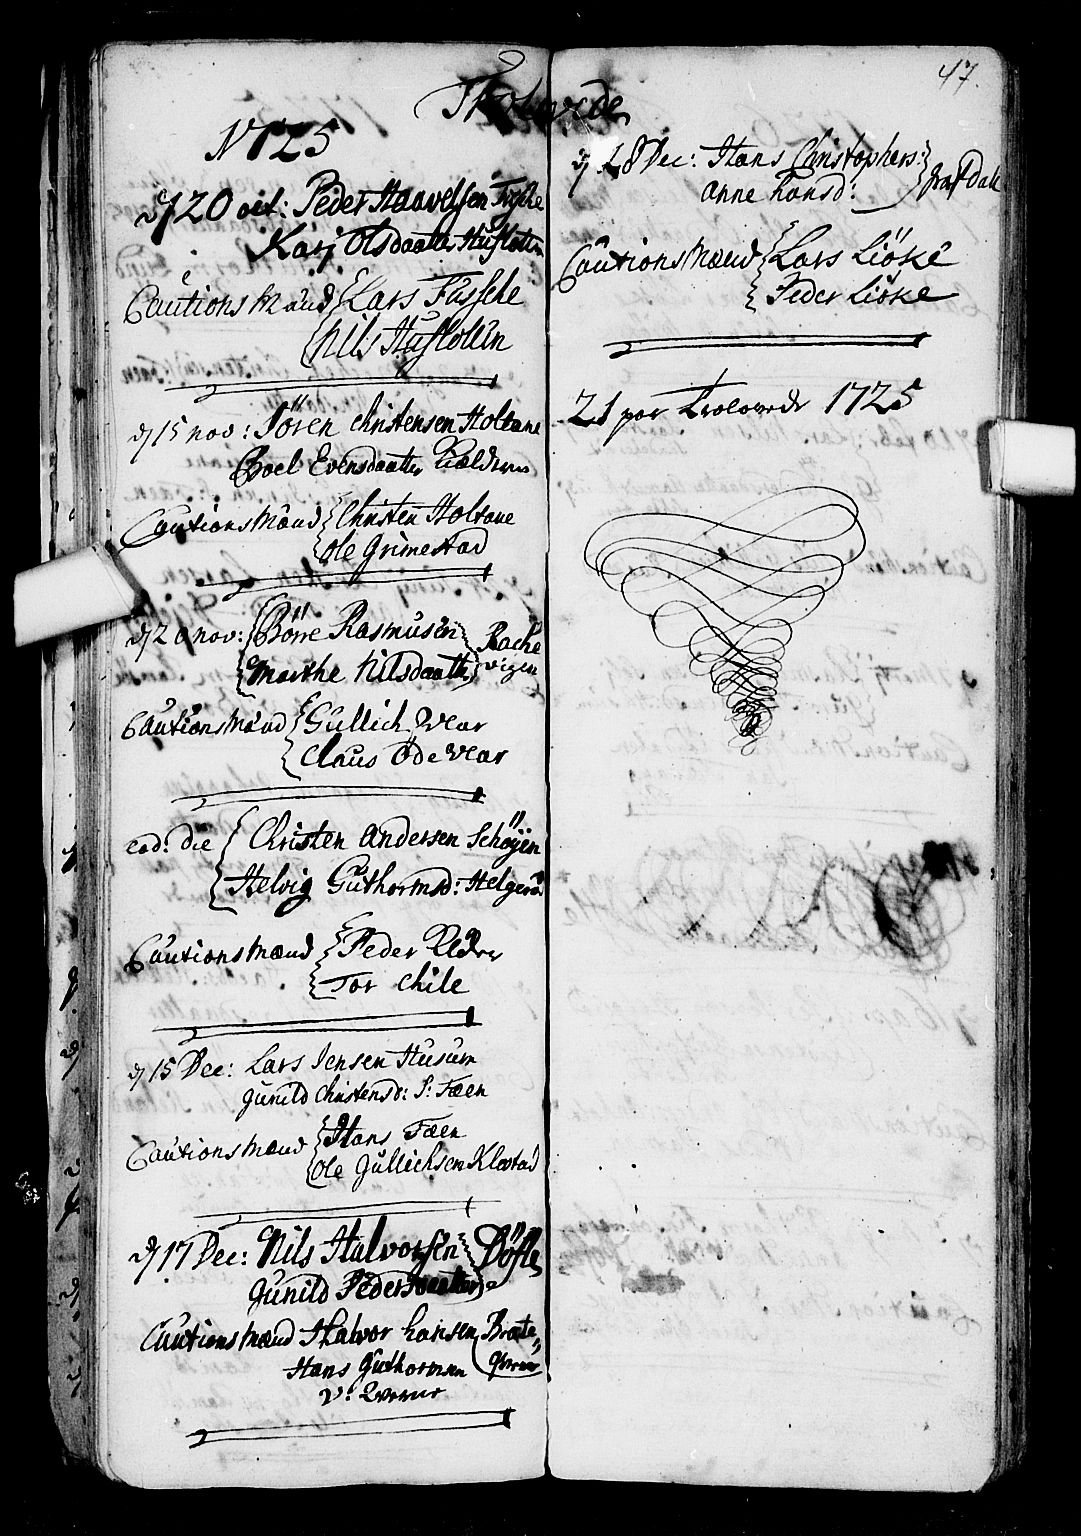 Trolovede
1725
d 20 oct: Peder Haavelsen Fysche
Karj Olsdaatter Husloten
Cautions Mænd Lars Fussche
Nils Husloten
d 15 nov: Sören Christensen Holtane
Boel Evensdaatter
Cautions Mænd Christen Holtane
Ole Grimestad
d 20 nov: Börre Rasmusen
Marthe Nilsdaatter
Racke
vigen
Cautions Mænd Gullich Vear
Claus Öde Vear
eod: die Christen Andersen Schöyen
Helvig Guthormsd: Helgerö
Cautions Mænd Peder
Tor Chile
d 15 Dec: Lars Jensen Husum
Gunild Christensd: S: Fæen
Cautions Mænd Hans Fæen
Ole Gullichsen Klavstad
d 17 Dec: Nils Halvorsen
Gunild Pedersdaatter
Cautions Mænd Halvor Hansen Bræte
Hans Guthormsen
47.
d 28 Dec: Hans Christophers:
Anne Hansd:
Cautions Mænd Lars Liöke
Peder Liöke
21 par Trolovede 1725